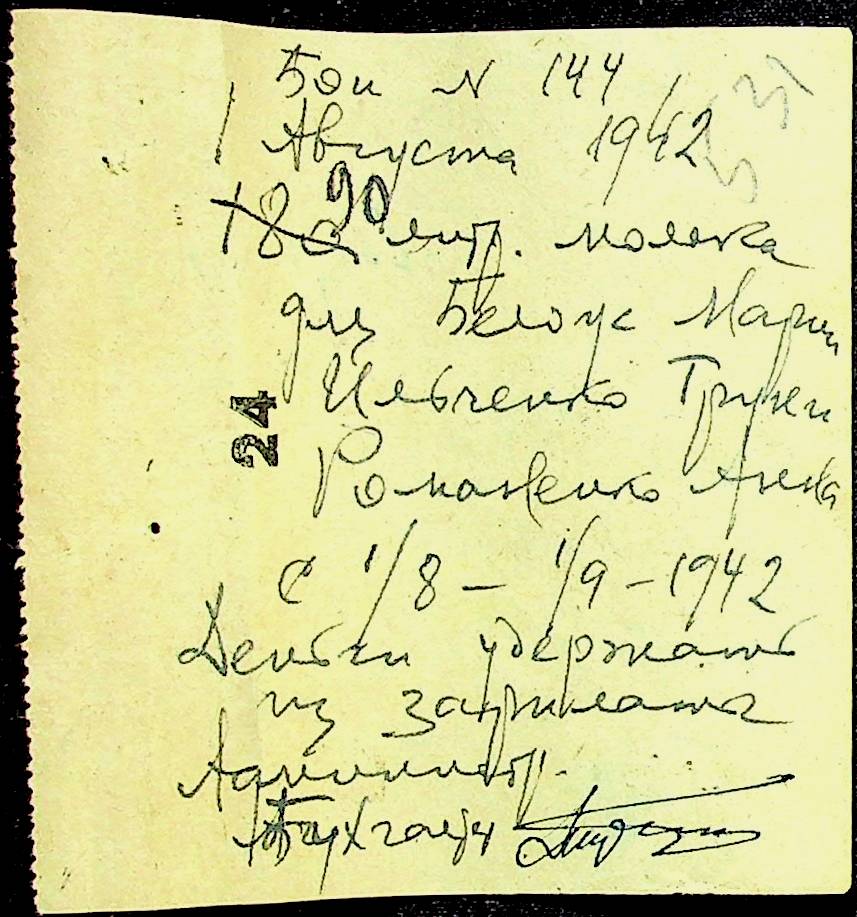 Бон N 144
1 Августа 1942
180 90 литр. молока
для Белоус Марии
24
Ильченко
Романенко Анна
с 1/8 – 1/9 – 1942
Деньги удержать
из зарплаты
Администр.
Бухгалтер